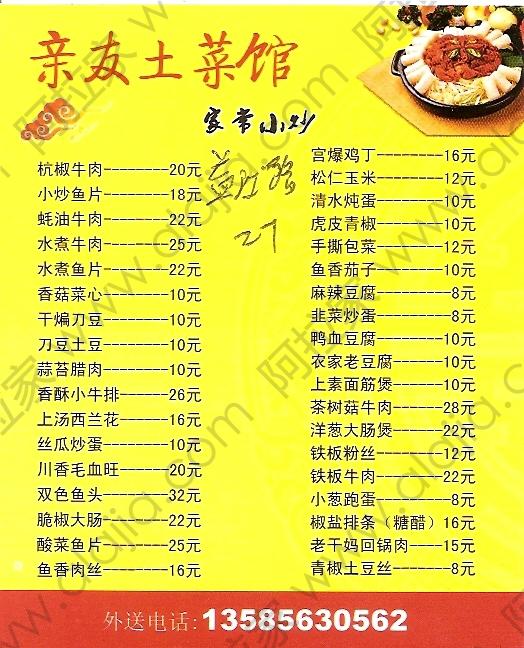 亲友土菜馆
家常小炒
杭椒牛肉--------20元
小炒鱼片--------18元
蚝油牛肉--------22元
水煮牛肉--------25元
水煮鱼片--------22元
香菇菜心--------10元
干煸刀豆--------10元
刀豆土豆--------10元
蒜苔腊肉--------10元
香酥小牛排------26元
上汤西兰花------16元
丝瓜炒蛋--------10元
川香毛血旺------20元
双色鱼头--------32元
脆椒大肠--------22元
酸菜鱼片--------25元
鱼香肉丝--------16元
27
宫爆鸡丁--------16元
松仁玉米--------12元
清水炖蛋--------10元
虎皮青椒--------10元
手撕包菜--------12元
鱼香茄子--------10元
麻辣豆腐--------8元
韭菜炒蛋--------8元
鸭血豆腐--------10元
农家老豆腐------10元
上素面筋煲------10元
茶树菇牛肉------28元
洋葱大肠煲------22元
铁板粉丝--------12元
铁板牛肉--------22元
小葱跑蛋--------8元
椒盐排条（糖醋）16元
老干妈回锅肉----15元
青椒土豆丝------8元
外送电话:13585630562
阿拉家 www.alajia.com